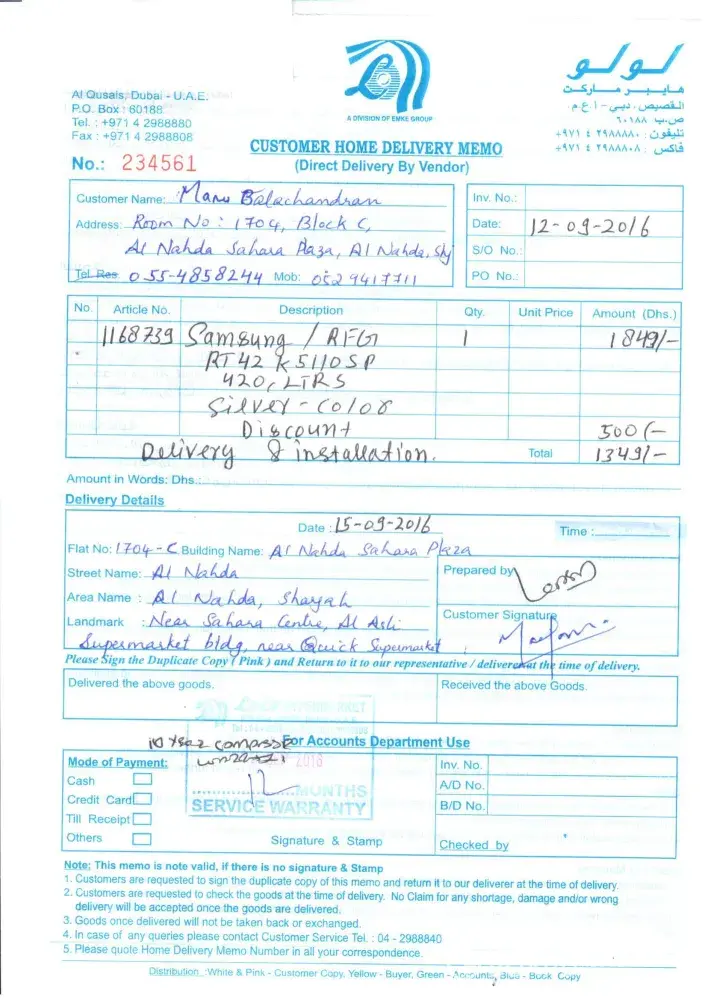 لولو
هايبر ماركت
القصيص، دبي - ا.ع.م.
ص.ب ٦٠١٨٨
تليفون : ٢٩٨٨٨٨٠ ٤ ٩٧١+
فاكس : ٢٩٨٨٨٠٨ ٤ ٩٧١+
A DIVISION OF EMKE GROUP
Al Qusais, Dubai - U.A.E.
P.O. Box : 60188
Tel. : +971 4 2988880
Fax : +971 4 2988808
No.: 234561
CUSTOMER HOME DELIVERY MEMO
(Direct Delivery By Vendor)
Customer Name: Manu Balachandran
Address: Room No : 1704, Block C,
Al Nahda Sahara Plaza, Al Nahda, Shj
Tel. Res 055-4858244 Mob: 0529417711
Inv. No.:
Date: 12-09-2016
S/O No.:
PO No.:
No. Article No. Description Qty. Unit Price Amount (Dhs.)
1168739 Samsung / RFG 1 1849/-
RT42K5110SP
420, LTRS
Silver - Color
Discount 500/-
Delivery & installation. Total 1349/-
Amount in Words: Dhs.:
Delivery Details
Date : 15-09-2016 Time :
Flat No: 1704 - C Building Name: Al Nahda Sahara Plaza
Street Name: Al Nahda
Area Name : Al Nahda, Sharjah
Landmark : Near Sahara Centre, Al Asli
Supermarket bldg, near Quick Supermarket
Prepared by
Customer Signature
Please Sign the Duplicate Copy ( Pink ) and Return to it to our representative / deliverer at the time of delivery.
Delivered the above goods. Received the above Goods.
10 Year compress
For Accounts Department Use
2016
12
MONTHS
SERVICE WARRANTY
Mode of Payment:
Cash
Credit Card
Till Receipt
Others
Signature & Stamp
Inv. No.
A/D No.
B/D No.
Checked by
Note: This memo is note valid, if there is no signature & Stamp
1. Customers are requested to sign the duplicate copy of this memo and return it to our deliverer at the time of delivery.
2. Customers are requested to check the goods at the time of delivery. No Claim for any shortage, damage and/or wrong
delivery will be accepted once the goods are delivered.
3. Goods once delivered will not be taken back or exchanged.
4. In case of any queries please contact Customer Service Tel. : 04 - 2988840
5. Please quote Home Delivery Memo Number in all your correspondence.
Distribution :White & Pink - Customer Copy, Yellow - Buyer, Green - Accounts, Blue - Book Copy